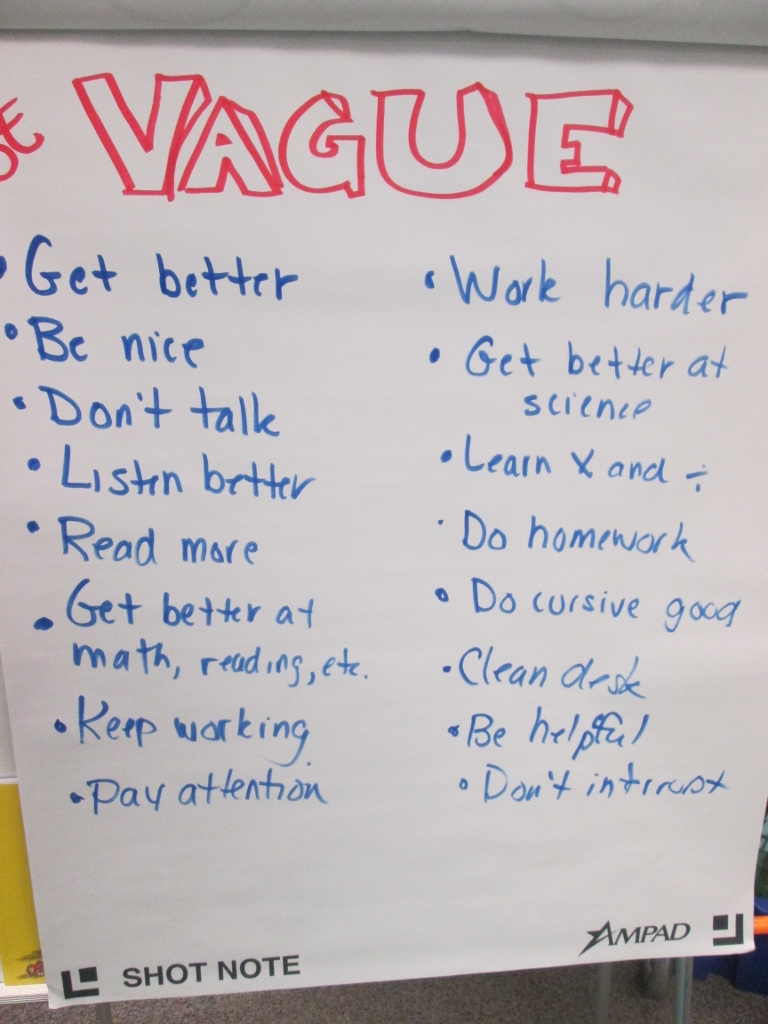 VAGUE
• Get better
• Be nice
• Don't talk
• Listen better
• Read more
• Get better at
math, reading, etc.
• Keep working
• Pay attention
• Work harder
• Get better at
science
• Learn X and ÷
• Do homework
• Do cursive good
• Clean desk
• Be helpful
• Don't
SHOT NOTE
AMPAD